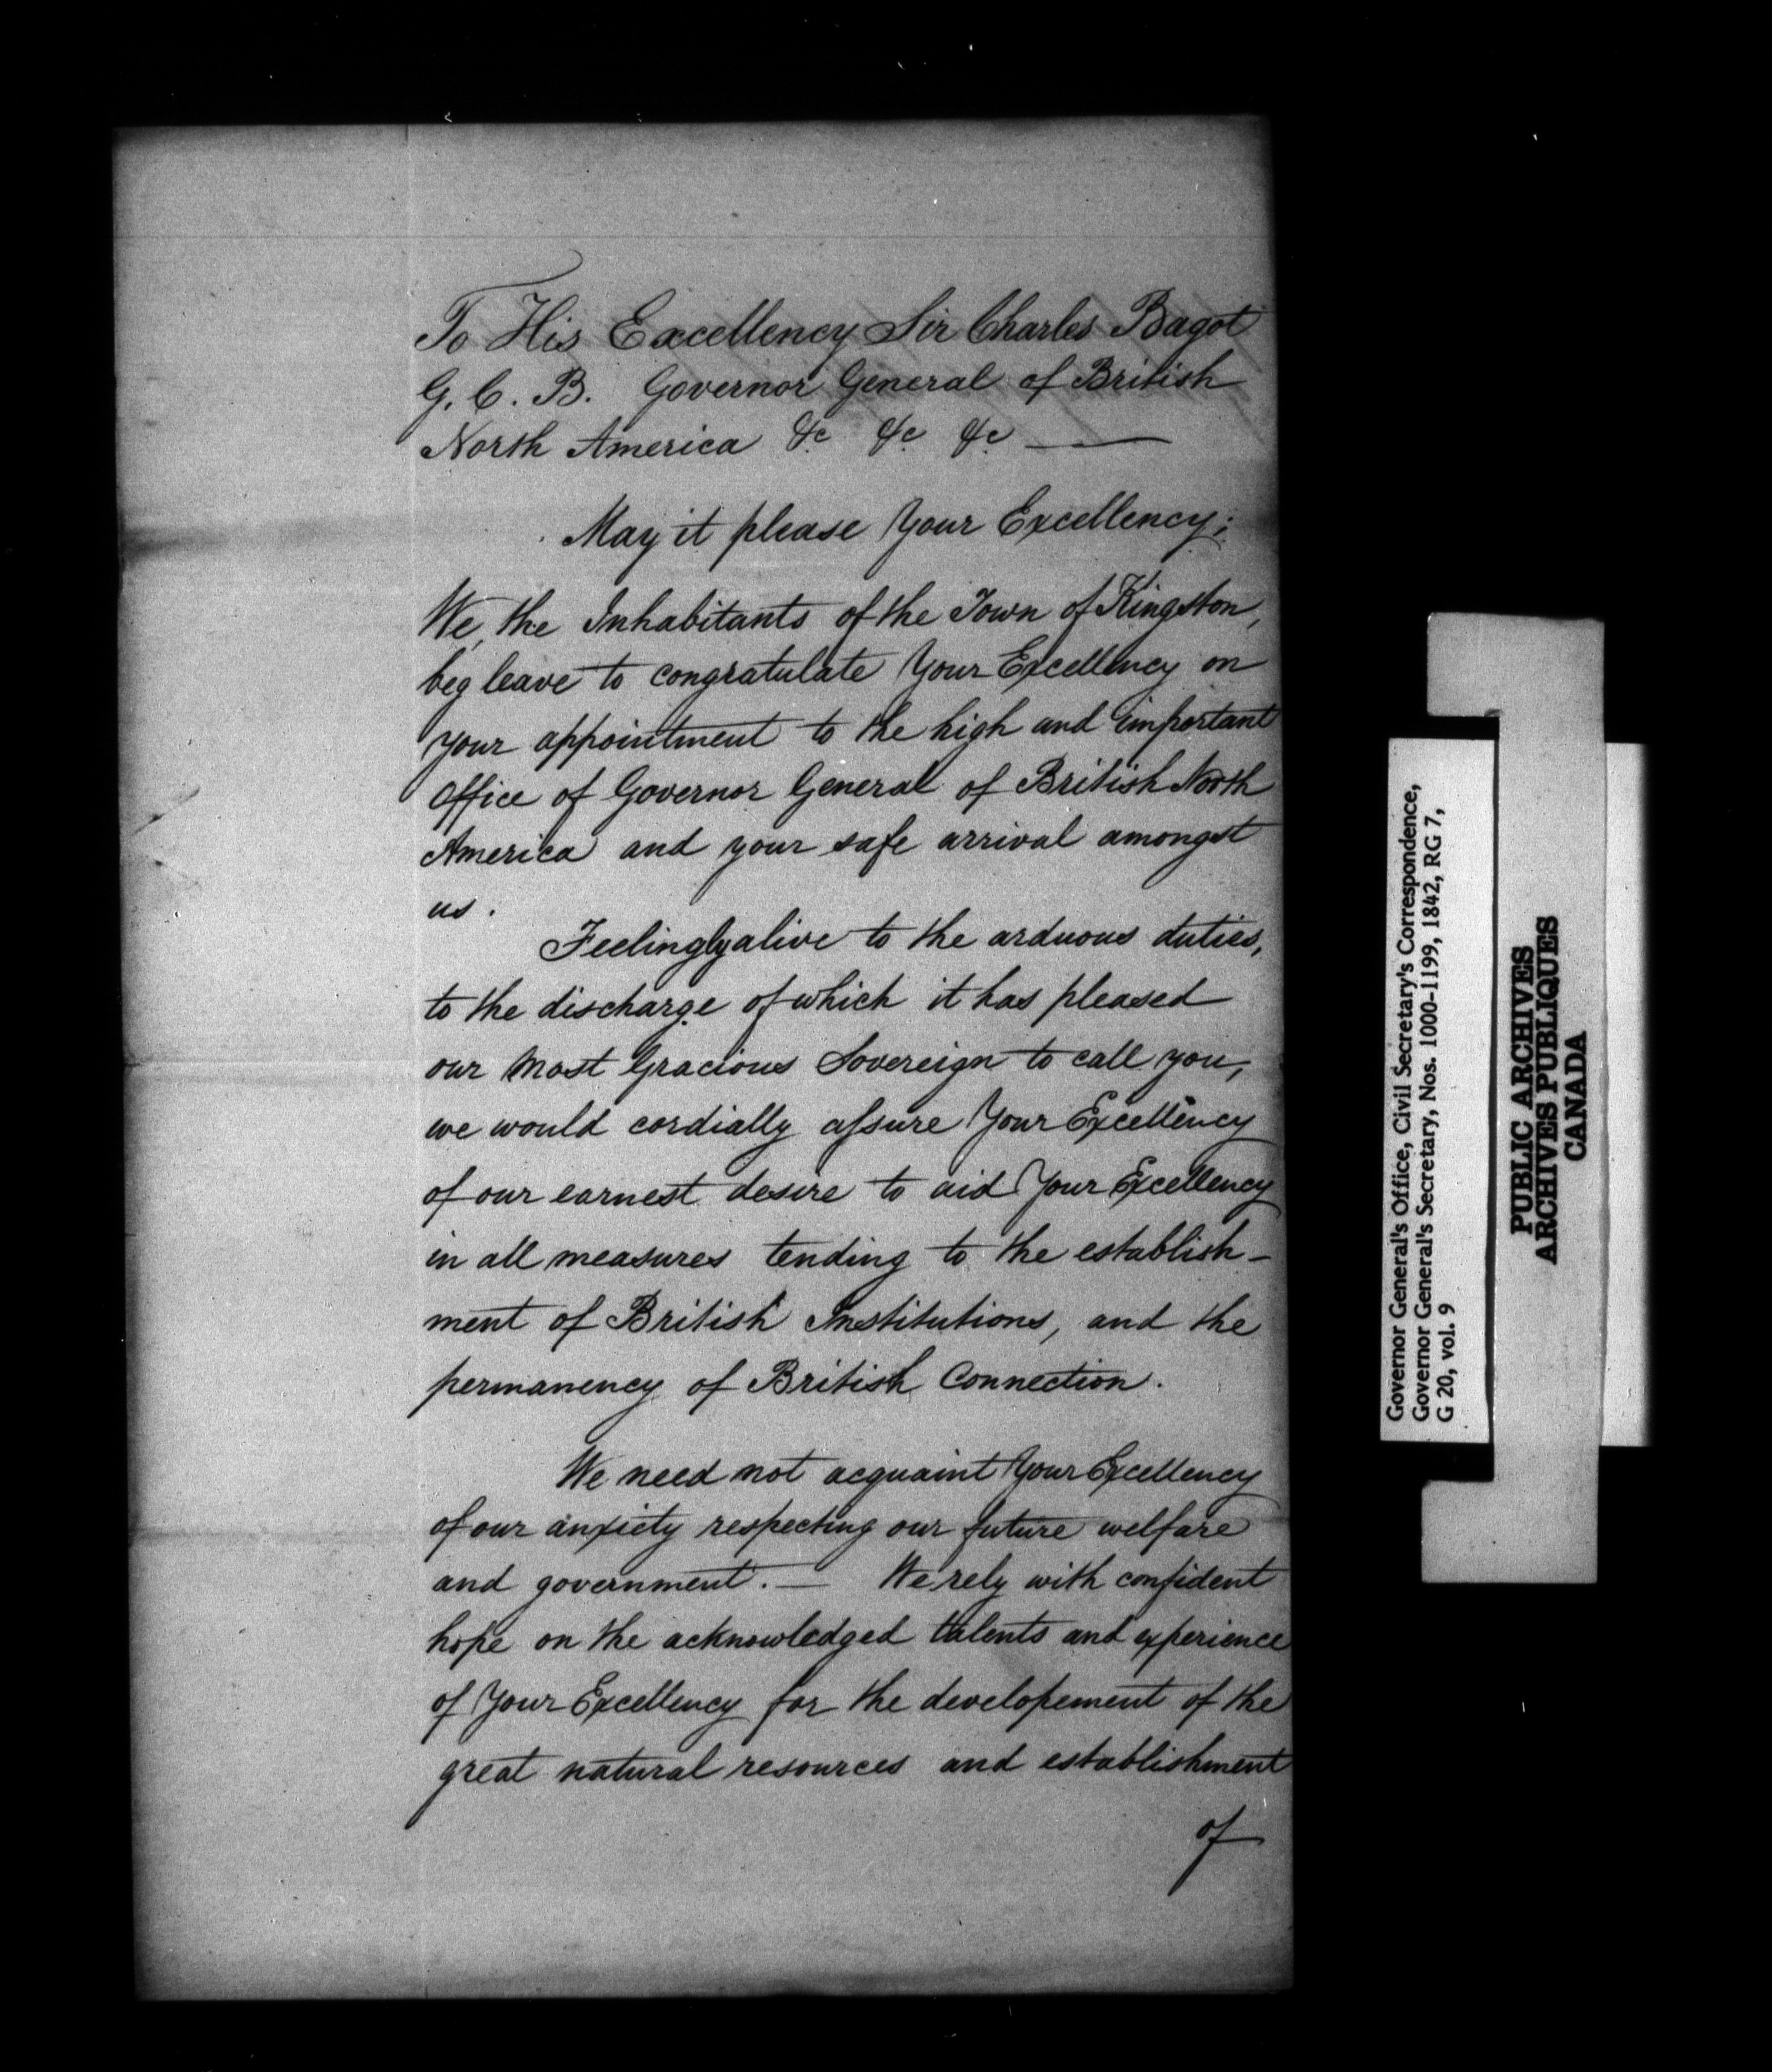 To His Excellency Sir Charles Bagot
G. C. B. Governor General of British
North America &c &c &c —
May it please Your Excellency;
We, the Inhabitants of the Town of Kingston,
beg leave to congratulate Your Excellency on
your appointment to the high and important
Office of Governor General of British North
America and your safe arrival amongst
us.
Feelingly alive to the arduous duties,
to the discharge of which it has pleased
our Most Gracious Sovereign to call you,
we would cordially assure Your Excellency
of our earnest desire to aid Your Excellency
in all measures tending to the establish-
ment of British Institutions, and the
permanency of British Connection.
We need not acquaint Your Excellency
of our anxiety respecting our future welfare
and government. — We rely with confident
hope on the acknowledged talents and experience
of Your Excellency for the developement of the
great natural resources and establishment
of
Governor General's Office, Civil Secretary's Correspondence,
Governor General's Secretary, Nos. 1000-1199, 1842, RG 7,
G 20, vol. 9
PUBLIC ARCHIVES
ARCHIVES PUBLIQUES
CANADA